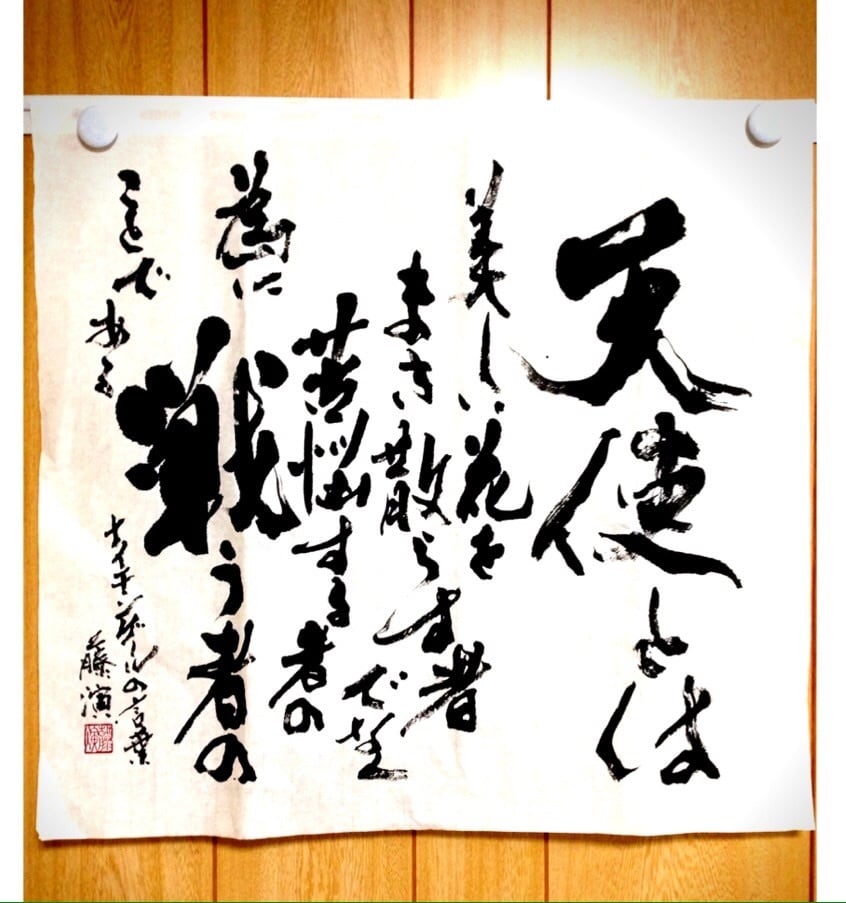 天使とは
美しい花を
まき散らす者
でなく
苦悩する者の
為に
戦う者の
ことである
ナイチンゲールの言葉
藤演